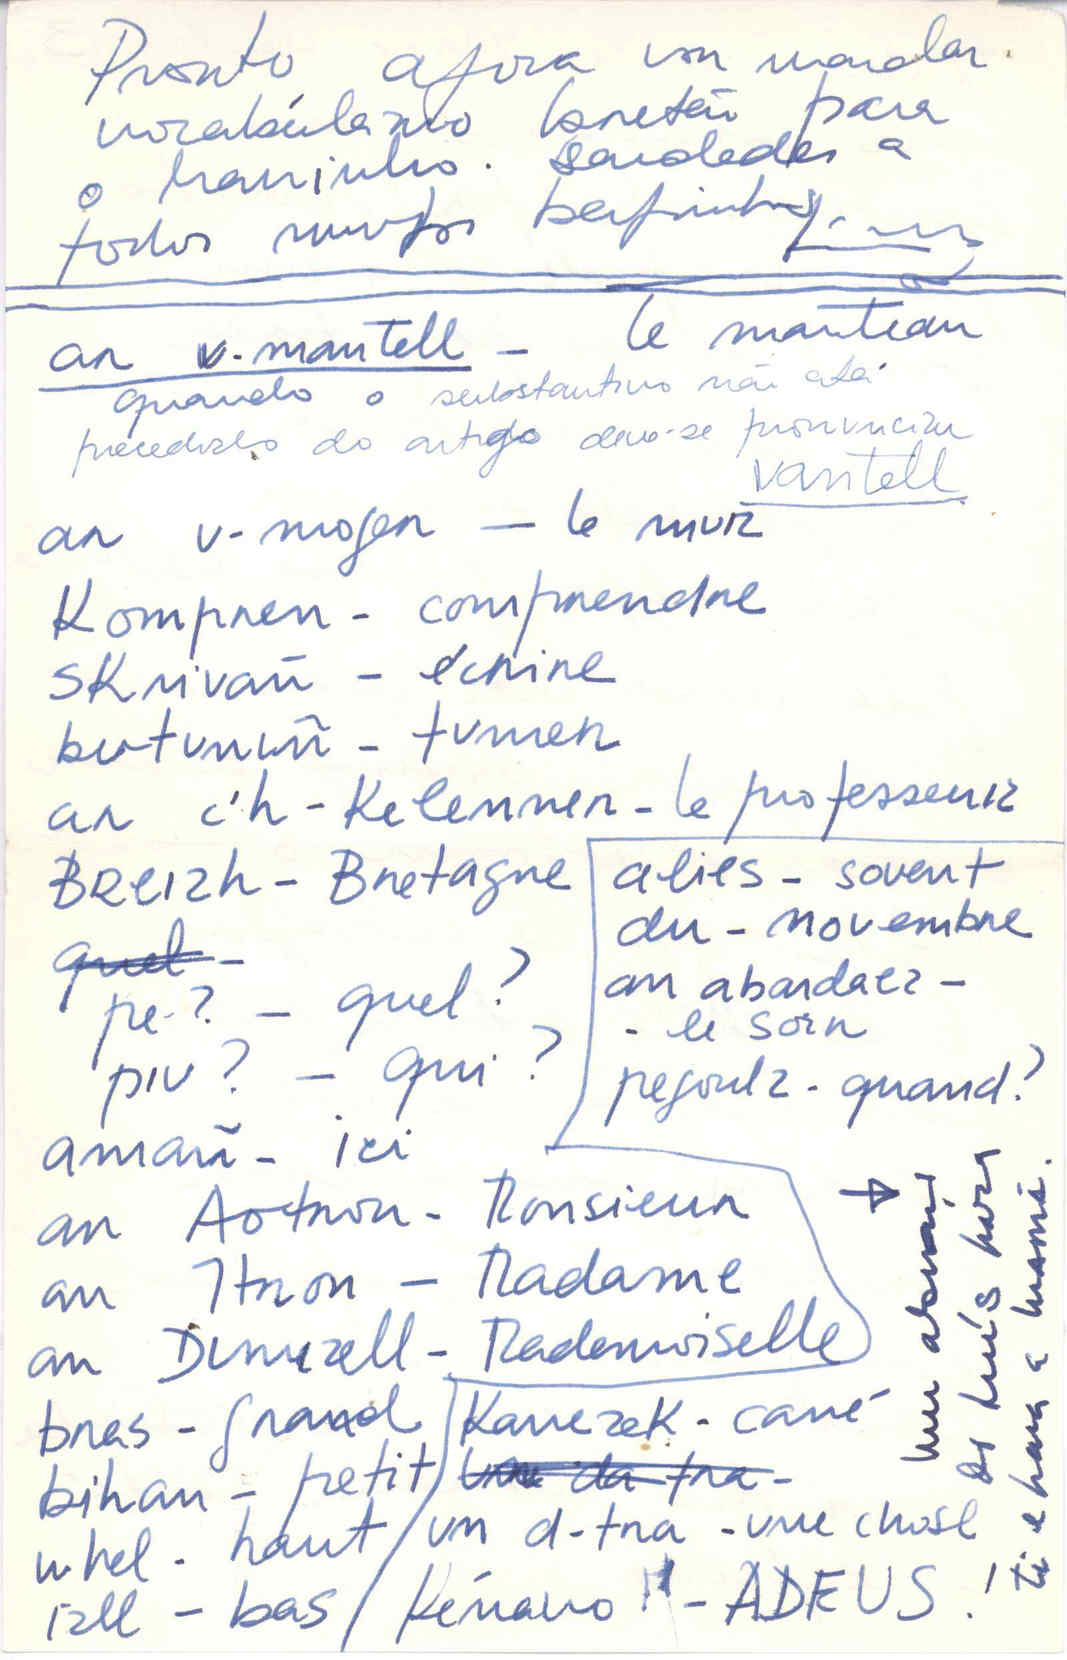 Pronto agora vou mandar
vocabulário bretão para
o maninho. Saudades a
todos muitos beijinhos
an v-mantell - le manteau
quando o substantivo não está
precedido do artigo deve-se pronunciar
vantell
an v-mogen - le mur
Kompren - comprendre
SKrivañ - écrire
butuniñ - fumer
an c'h-Kelenner - le professeur
BREIZh - Bretagne
quel -
pe-? - quel?
piv? - qui?
amañ - ici
an Aotrou - Monsieur
an Itron - Madame
an Dimezell - Mademoiselle
bras - grand
bihan - petit
uhel - haut
izel - bas
alies - sovent
du - novembre
an abardaez -
- le soir
pegoulz - quand?
Karrezek - carré
un d-tra - une chose
Kénavo!! - ADEUS!
→ Um abraço
ao Luís para
ti e para a mamã.